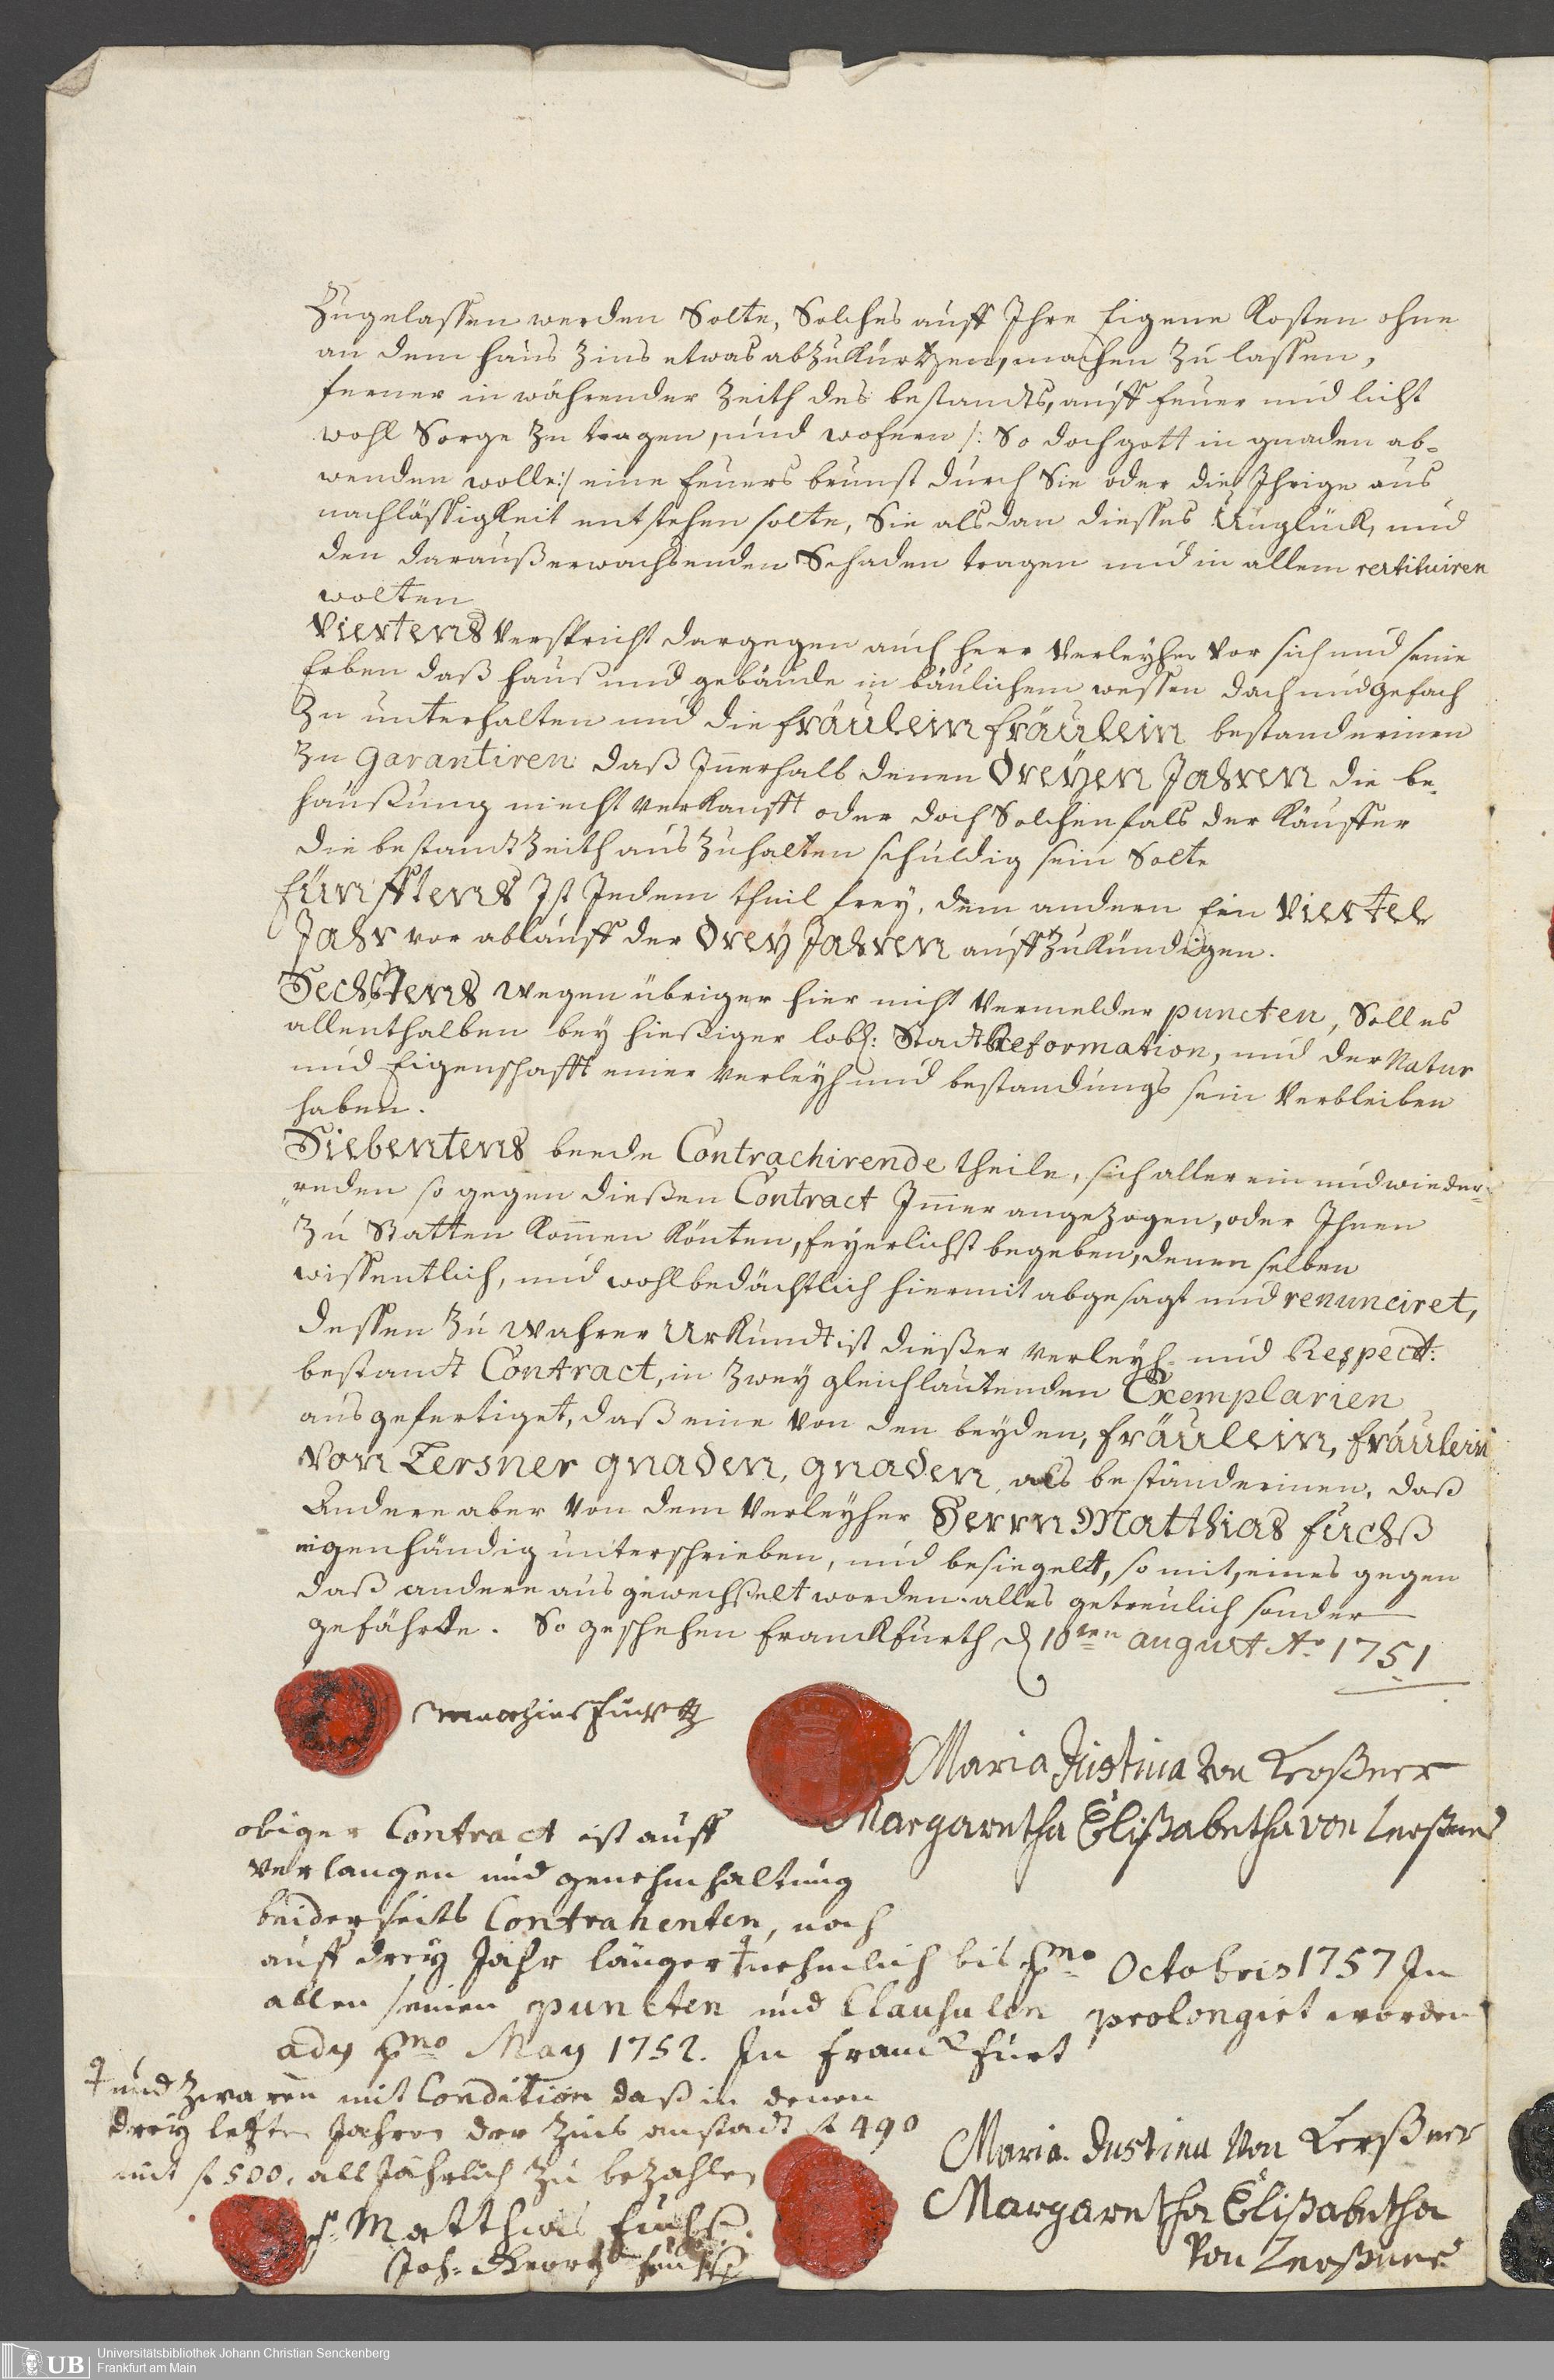 Zugelassen werden Solte, Solches auff Ihre Eigene Kosten ohne
an dem hauszins etwas abzukürtzen, machen zu lassen,
ferner in währender Zeith des bestandts, auff feuer und licht
wohl Sorge zu tragen, und wofern /: So doch gott in gnaden ab-
wenden wolle:/ eine feuers brunst durch Sie oder die Ihrige aus
nachlässigkeit entstehen solte, Sie alsdan diesses Unglück, und
den daraußerwachsenden Schaden tragen und in allem restituiren
wolten
Viertens Verspricht dargegen auch herr Verleyher Vor sich und seine
Erben daß hauß und gebäude in bäulichem wessen dach und gefach
Zu unterhalten und die fräulein fräulein bestanderinen
Zu Garantiren daß Innerhalb denen Dreyen Jahren die be-
haußung niecht verkaufft oder doch Solchenfals der Käuffer
die bestandtzeith auszuhalten schuldig sein Solte
fünfftens Ist Jedem theil frey, dem andern Ein Viertel
Jahr vor ablauff der Drey Jahren auffzukündigen.
Sechstens wegen übriger hier nicht Vermelder puncten, Soll es
allenthalben bey hießiger lobl: Stadt Reformation, und der Natur
und Eigenschafft einer Verleyh und bestandungs sein Verbleiben
haben.
Siebentens beede Contrachirende theile, sich aller ein und wieder-
reden so gegen dießen Contract Immer angezogen, oder Ihnen
zu Statten Kommen Könten, feyerlichst begeben, denenselben
wissentlich, und wohlbedächtlich hiermit abgesagt und renunciret,
dessen zu wahrer Urkundt ist dießer Verleyh- und Respect:
bestandt Contract, in zwey gleichlautenden Exemplarien
ausgefertiget, daß eine Von den beyden, fräulein, fräulein
Von Lersner gnaden, gnaden, als beständerinen, daß
Andere aber Von dem Verleyher Herrn Matthias fuchß
eigenhändig unterschrieben, und besiegelt, so mit, eines gegen
daß andere ausgewechßelt worden. alles getreulich sonder
gefährde. So geschehen Franckfurth d 10ten august Ao 1751
Matthias Fuchs
Maria Justina von Lerßner
Margaretha Elißabetha von Lerßner
obiger Contract ist auff
verlangen und genehmhaltung
beiderseits Contrahenten, noch
auff drey Jahr länger ♀ nehmlich bis pmo Octobris 1757 In
allen seinen puncten und Clausulen prolongirt worden
ady pmo May 1752. In Franckfurt
♀ und zwaren mit Condition daß in denen
drey letzten Jahren der Zins anstadt f 490
mit f 500. all Jährlich zu bezahlen
Maria Justina Von Lerßner
Margaretha Elißabetha
Von Lerßner
Matthias Fuchß.
Joh: Georg Fuchß
Universitätsbibliothek Johann Christian Senckenberg
UB
Frankfurt am Main